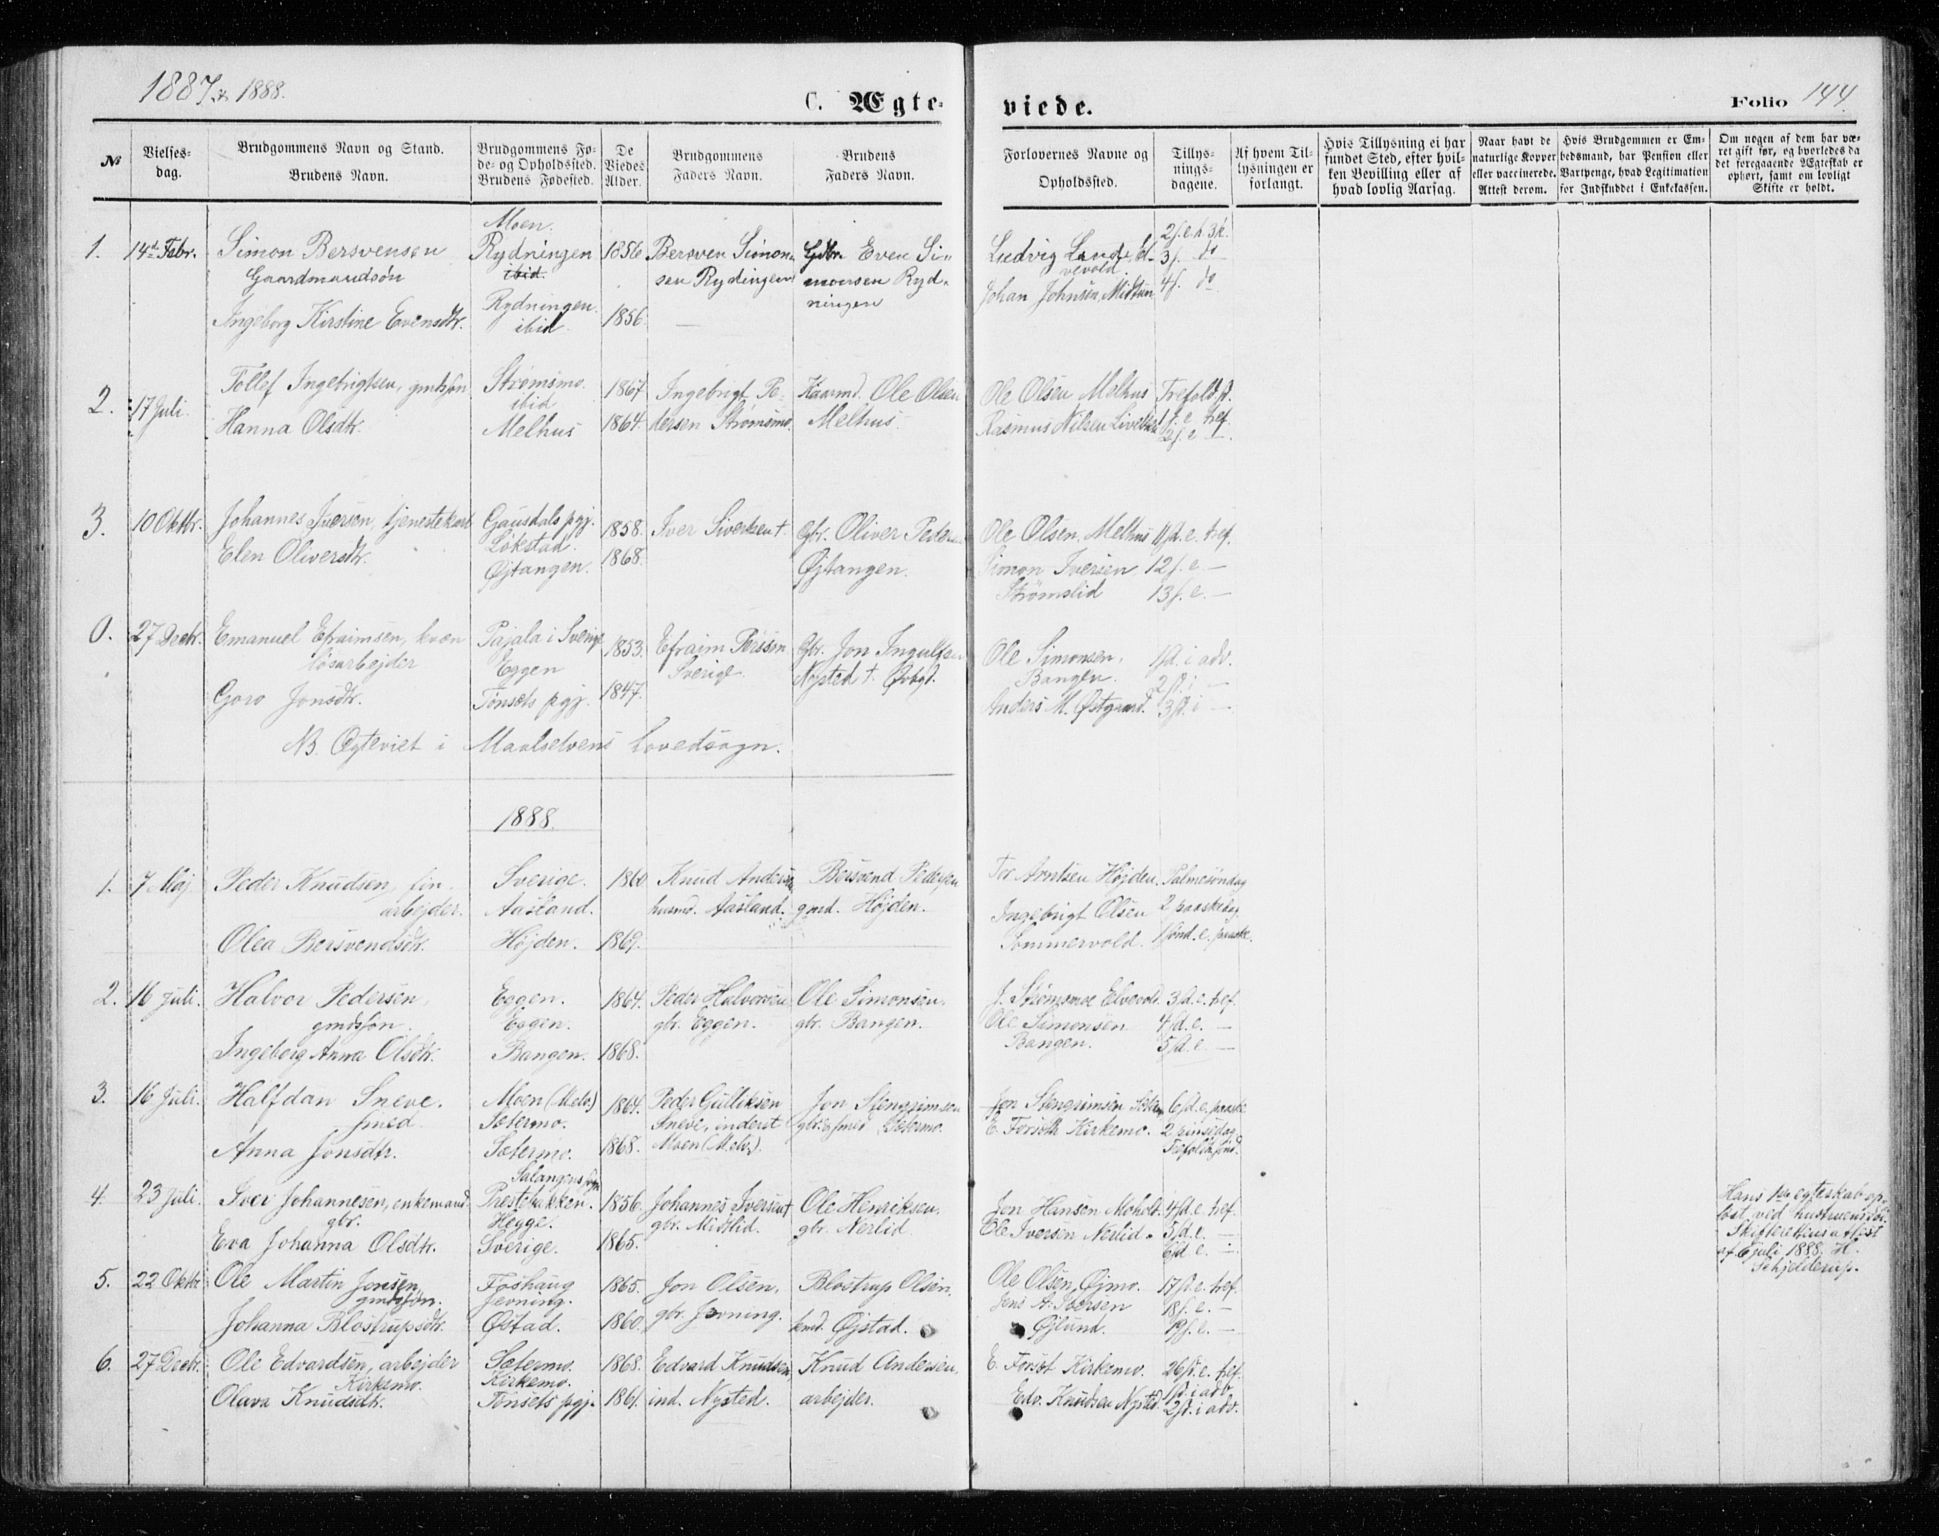 1887 & 1888.
C. Ægte-
viede.
Folio 144.
№
Vielses-
dag.
Brudgommens Navn og Stand.
Brudens Navn.
Brudgommens Fø-
de- og Opholdssted.
Brudens Fødested.
De
Viedes
Alder.
Brudgommens
Faders Navn.
Brudens
Faders Navn.
Forlovernes Navne og
Opholdssted.
Tillys-
nings-
dagene.
Af hvem Til-
lysningen er
forlangt.
Hvis Tillysning ei har
fundet Sted, efter hvil-
ken Bevilling eller af
hvad lovlig Aarsag.
Naar havt de
naturlige Kopper
eller vaccinerede.
Attest derom.
Hvis Brudgommen er Em-
bedsmand, har Pension eller
Vartpenge, hvad Legitimation
for Indskuddet i Enkekassen.
Om nogen af dem har væ-
ret gift før, og hvorledes da
det foregaaende Ægteskab er
ophørt, samt om lovligt
Skifte er holdt.
1. 14d Febr. Simon Bersvensen
Gaardmandssøn
Ingeborg Kirstine Evensdtr.
Moen.
Rydningen
ibid.
Rydningen
ibid
1856
1856.
Bersven Simon-
sen Rydingen
Gdbr. Even Si-
monsen Ryd-
ningen
Ludvig Lande El-
vevold
Johan Johnsen, Midtun
2 s. e. h. 3 k.
3 s. do
4 s. do
2. 17 Juli. Tollef Ingebrigtsen, gmdsøn
Hanna Olsdtr.
Strømsmo.
ibid
Melhus
1867
1864.
Ingebrigt Pe-
dersen Strømsmo.
Kaarmd. Ole Olsen
Melhus.
Ole Olsen Melhus
Rasmus Nilsen
Trefold. s.
1 s. e. tref.
2 s. e. —
3. 10 Oktbr. Johannes Iversen, tjenestekarl
Elen Oliversdtr.
Gausdals pgj.
Løkstad.
Øjtangen.
1858.
1868.
Iver Sivertsen †.
Gbr. Oliver Peders.
Øjtangen.
Ole Olsen, Melhus
Simon Iversen
Strømslid
11 s. e. tref.
12 s. e. —
13 s. e. —
0. 27 Decbr. Emanuel Efraimsen, kvæn
løsarbejder
Goro Jonsdtr.
Pajala i Sverige
Eggen
Tønsets pgj.
1853.
1847.
Efraim Persson
Sverige.
Gbr. Jon Ingulfsen
Nysted † Øvbgd.
Ole Simonsen,
Bangen.
Anders M. Østgaard.
1 s. i adv.
2 s. i —
3 s. i —
NB. Ægteviet i Maalselvens hovedsogn.
1888.
1. 7 Maj Peder Knudsen, fin.
arbejder.
Olea Bersvendsdtr.
Sverige.
Aasland.
Højden.
1860
1869.
Knud Anders.
husmd. Aasland.
Bersvend Pedersen
gmd. Højden.
Tor Arntsen Højden.
Ingebrigt Olsen
Sommervold.
Palmesøndag
2 paaskedag
1 sønd. e. paaske.
2. 16 Juli. Halvor Pedersen,
gmdssøn.
Ingeborg Anna Olsdtr.
Eggen.
Eggen.
Bangen.
1864.
1868.
Peder Halvorsen
gbr. Eggen.
Ole Simonsen,
gbr. Bangen.
J. Strømsmoe Elvevold.
Ole Simonsen
Bangen.
3 s. e. tref.
4 s. e. —
5 s. e. —
3. 16 Juli. Halfdan Sneve.
smed.
Anna Jonsdtr.
Moen (Melv.)
Sætermo.
Sætermo.
1864.
1868.
Peder Gulliksen
Sneve, inderst
Moen (Melv.).
Jon Stengrimsen
gbr. & smed Sætermo.
Jon Stengrimsen Sæter.
E. Forsøth Kirkemo.
6 s. e. paaske
2 pinsedag
Trefoldh. sønd.
4. 23 Juli. Iver Johannesen, enkemand
gbr.
Eva Johanna Olsdtr.
Salangens sogn
Prestebakken.
Hegge.
Sverige.
1856.
1865.
Johannes Iversen †
gbr. Midtlid.
Ole Henriksen,
gbr. Nerlid
Jon Hansen Moholt.
Ole Iversen Nerlid.
4 s. e. tref.
5 s. e. —
6 s. e. —
Hans 1ste egteskab op-
løst ved hustruens død.
Skifterettens attest
af 6 juli 1888. H.
Schjelderup.
5. 22 Oktbr Ole Martin Jonsen,
gmdsøn.
Johanna Blostrupsdtr.
Fosshaug
Jevning.
Østad.
1865.
1860.
Jon Olsen,
gbr. Jevning.
Blostrup Olsen,
kmd. Øjstad.
Ole Olsen, Øjmo.
Jens A. Iversen
Øjlund.
17 s. e. tref.
18 s. e. —
19 s. e. —
6. 27 Decbr. Ole Edvardsen, arbejder
Kirkemo.
Olava Knudsdtr.
Sætermo.
Kirkemo.
Tønsets pgj.
1868.
1861.
Edvard Knudsen
ind. Nysted.
Knud Andersen,
arbejder.
E. Forsøt Kirkemo.
Edv. Knudsen Nysted.
26 s. e. tref.
1 s. i adv.
2 s. i adv.